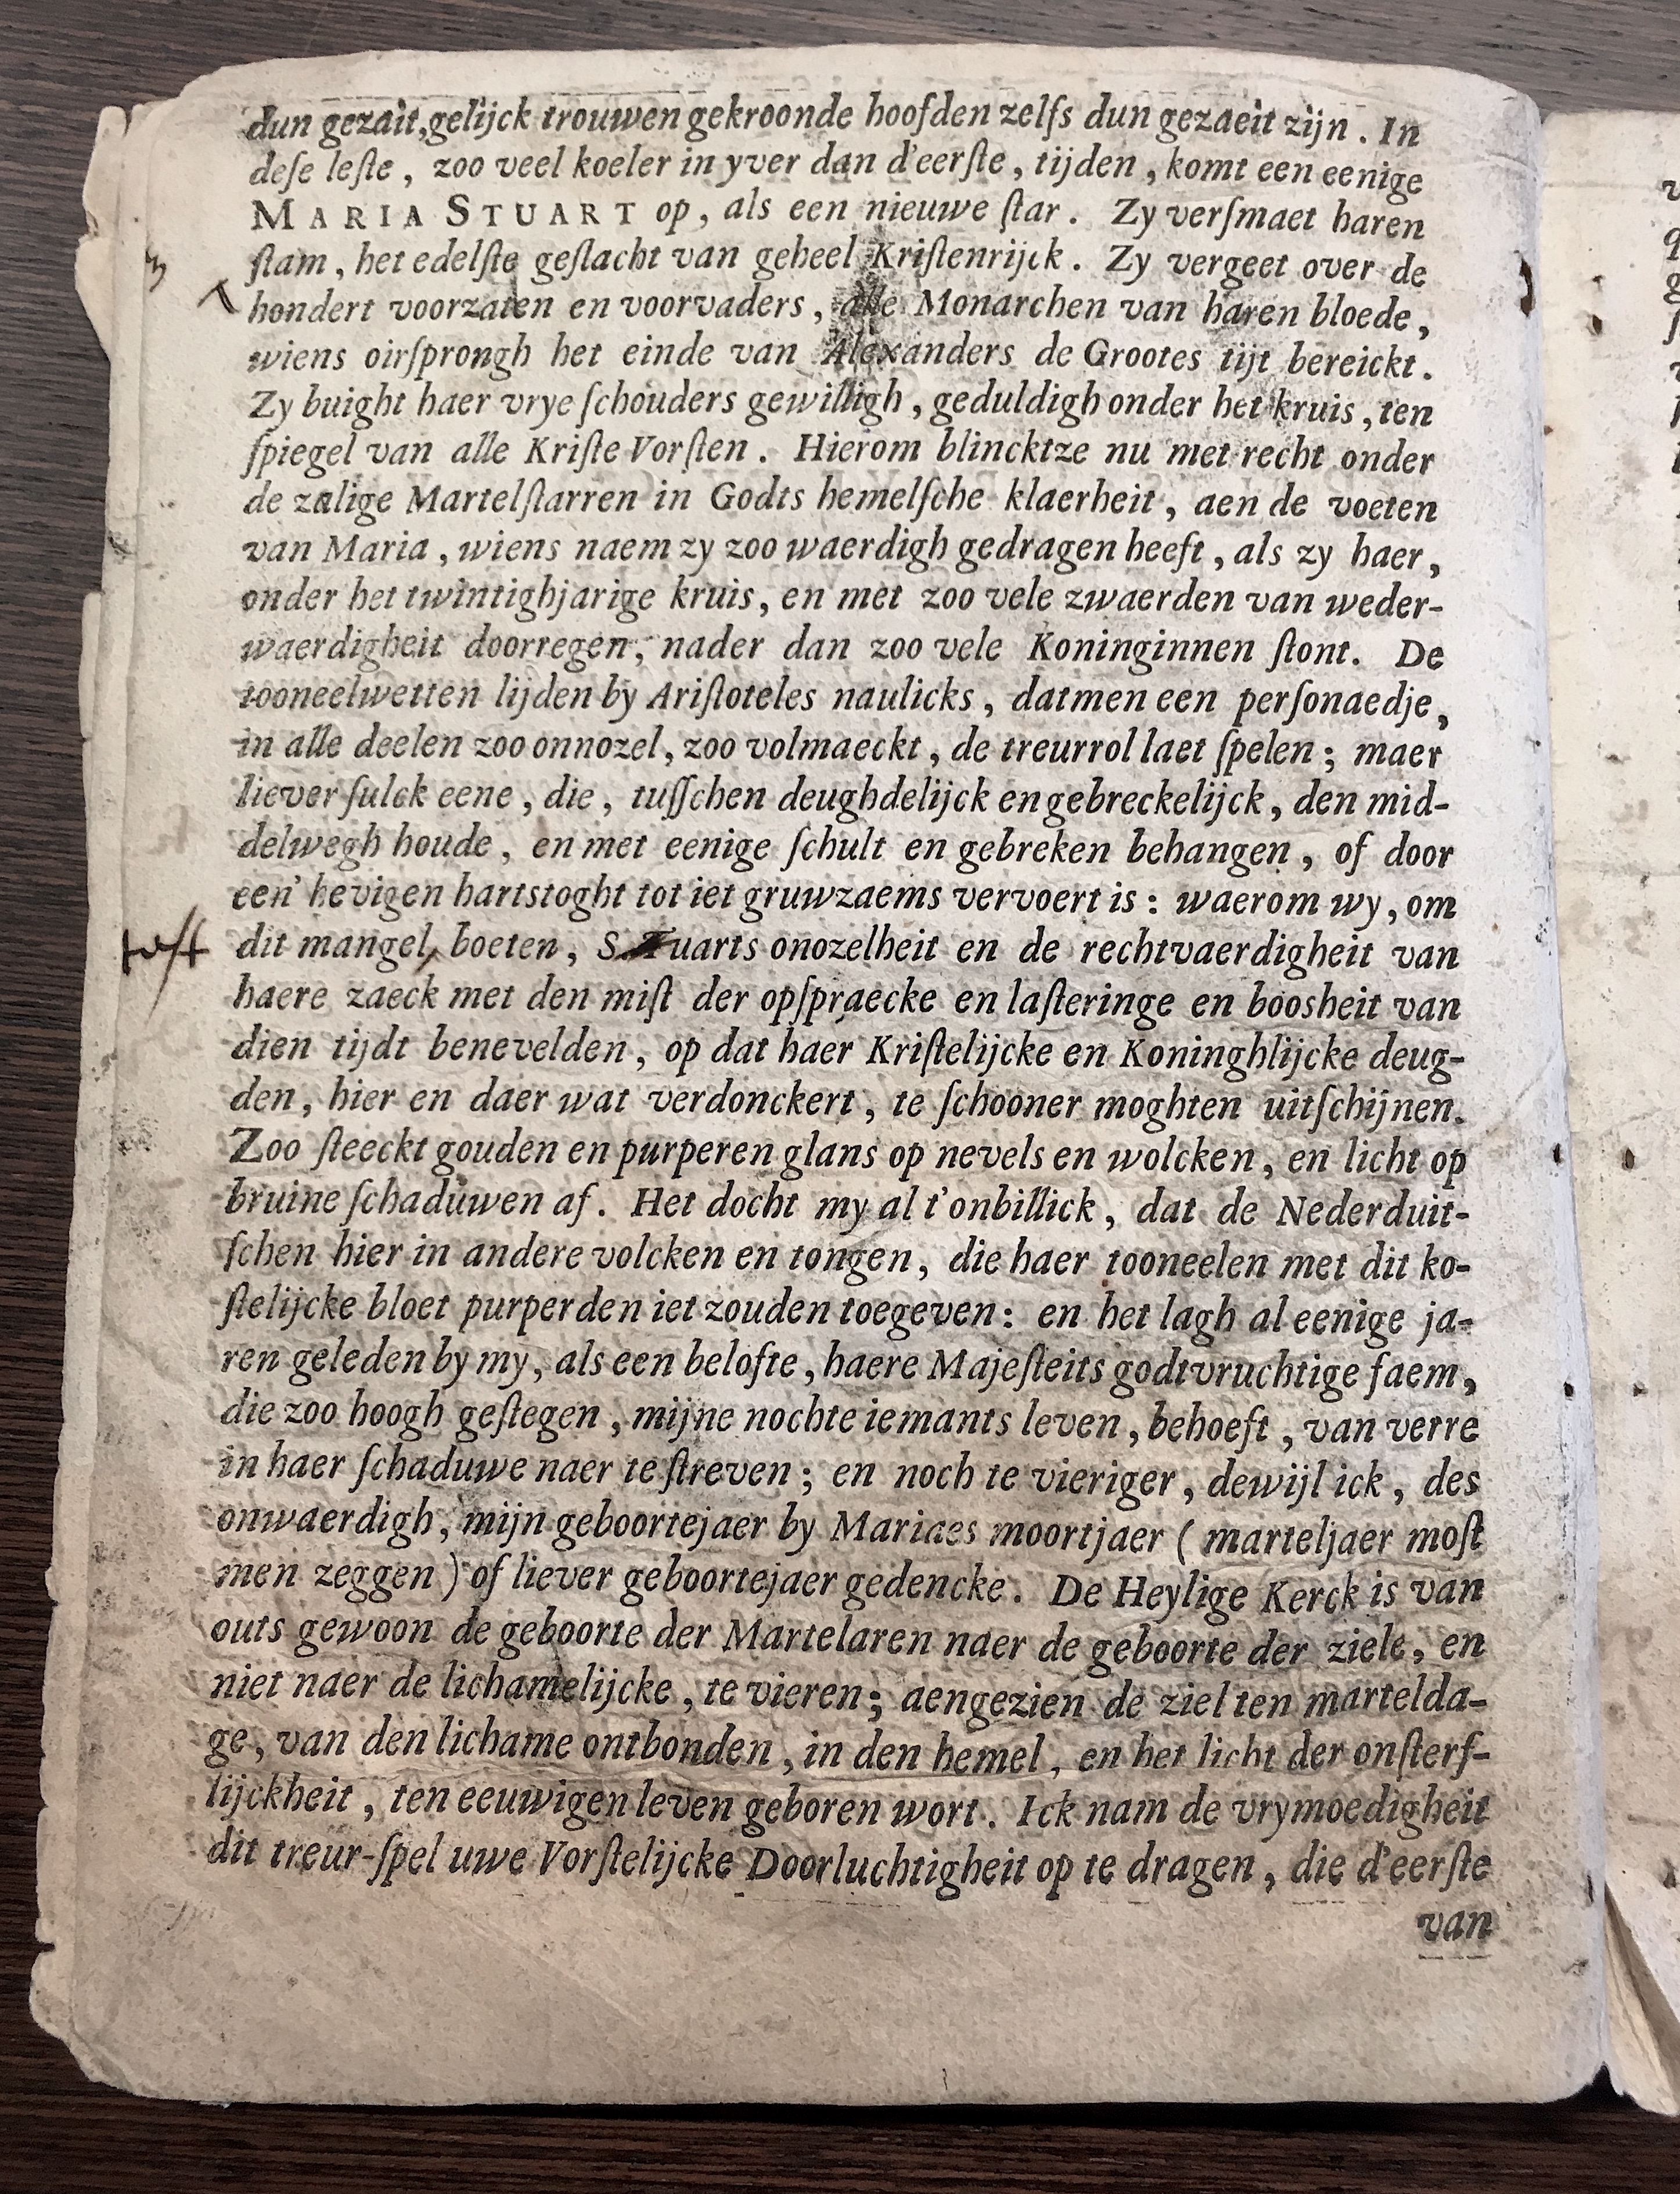 dun gezait, gelijck trouwen gekroonde hoofden zelfs dun gezaeit zijn. In
deſe leſte, zoo veel koeler in yver dan d'eerſte, tijden, komt een eenige
MARIA STUART op, als een nieuwe ſtar. Zy verſmaet haren
ſtam, het edelſte geſlacht van geheel Kriſtenrijck. Zy vergeet over de
hondert voorzaten en voorvaders, alle Monarchen van haren bloede,
wiens oirſprongh het einde van Alexanders de Grootes tijt bereickt.
Zy buight haer vrye ſchouders gewilligh, geduldigh onder het kruis, ten
ſpiegel van alle Kriſte Vorſten. Hierom blincktze nu met recht onder
de zalige Martelſtarren in Godts hemelſche klaerheit, aen de voeten
van Maria, wiens naem zy zoo waerdigh gedragen heeft, als zy haer,
onder het twintighjarige kruis, en met zoo vele zwaerden van weder-
waerdigheit doorregen, nader dan zoo vele Koninginnen ſtont. De
tooneelwetten lijden by Ariſtoteles naulicks, datmen een perſonaedje,
in alle deelen zoo onnozel, zoo volmaeckt, de treurrol laet ſpelen; maer
liever ſulck eene, die, tuſſchen deughdelijck en gebreckelijck, den mid-
delwegh houde, en met eenige ſchult en gebreken behangen, of door
een' hevigen hartstoght tot iet gruwzaems vervoert is: waerom wy, om
dit mangel, boeten, S. Tuarts onozelheit en de rechtvaerdigheit van
haere zaeck met den miſt der opſpraecke en laſteringe en boosheit van
dien tijdt benevelden, op dat haer Kriſtelijcke en Koninghlijcke deug-
den, hier en daer wat verdonckert, te ſchooner moghten uitſchijnen.
Zoo ſteeckt gouden en purperen glans op nevels en wolcken, en licht op
bruine ſchaduwen af. Het docht my al t'onbillick, dat de Nederduit-
ſchen hier in andere volcken en tongen, die haer tooneelen met dit ko-
ſtelijcke bloet purperden iet zouden toegeven: en het lagh al eenige ja-
ren geleden by my, als een belofte, haere Majeſteits godtvruchtige faem,
die zoo hoogh geſtegen, mijne nochte iemants leven, behoeft, van verre
in haer ſchaduwe naer te ſtreven; en noch te vieriger, dewijl ick, des
onwaerdigh, mijn geboortejaer by Mariaes moortjaer ( marteljaer moſt
men zeggen ) of liever geboortejaer gedencke. De Heylige Kerck is van
outs gewoon de geboorte der Martelaren naer de geboorte der ziele, en
niet naer de lichamelijcke, te vieren; aengezien de ziel ten martelda-
ge, van den lichame ontbonden, in den hemel, en het licht der onſterf-
lijckheit, ten eeuwigen leven geboren wort. Ick nam de vrymoedigheit
dit treur-ſpel uwe Vorſtelijcke Doorluchtigheit op te dragen, die d'eerſte
van